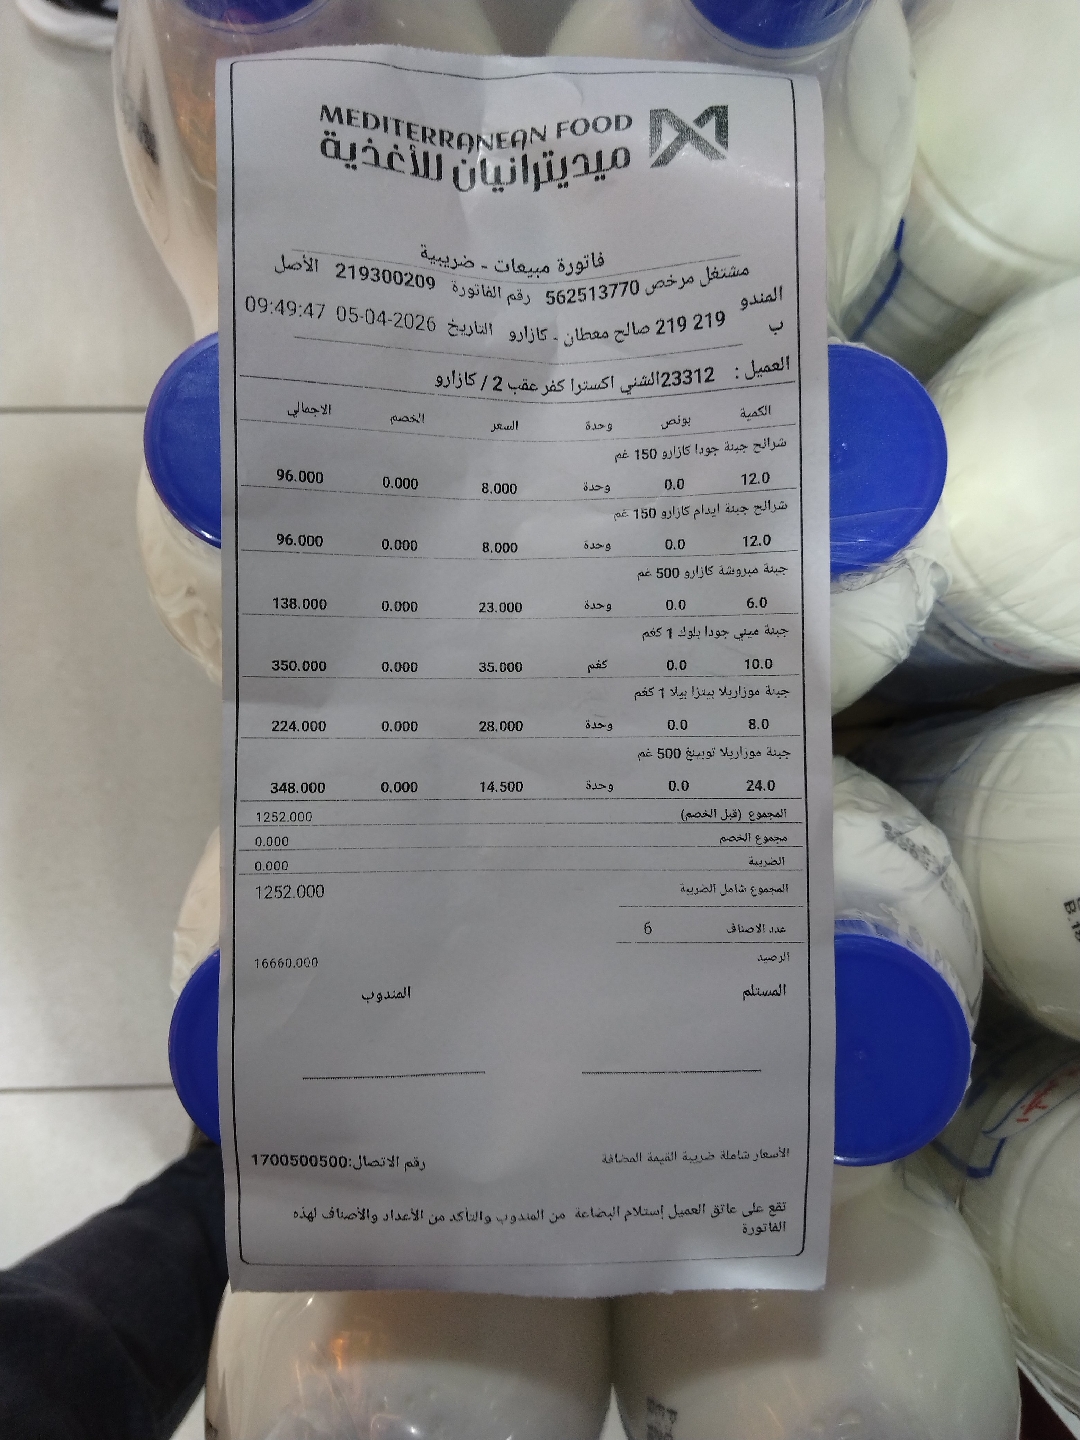 MEDITERRANEAN FOOD
ميديترانيان للأغذية
فاتورة مبيعات - ضريبية
مشتغل مرخص 562513770 رقم الفاتورة 219300209 الأصل
المندوب 219 219 صالح معطان - كازارو التاريخ 05-04-2026 09:49:47
العميل : 23312الشني اكسترا كفر عقب 2 / كازارو
الكمية بونص وحدة السعر الخصم الاجمالي
شرائح جبنة جودا كازارو 150 غم
12.0 0.0 وحدة 8.000 0.000 96.000
شرائح جبنة ايدام كازارو 150 غم
12.0 0.0 وحدة 8.000 0.000 96.000
جبنة مبروشة كازارو 500 غم
6.0 0.0 وحدة 23.000 0.000 138.000
جبنة ميني جودا بلوك 1 كغم
10.0 0.0 كغم 35.000 0.000 350.000
جبنة موزاريلا بيتزا بيلا 1 كغم
8.0 0.0 وحدة 28.000 0.000 224.000
جبنة موزاريلا توبينغ 500 غم
24.0 0.0 وحدة 14.500 0.000 348.000
المجموع (قبل الخصم) 1252.000
مجموع الخصم 0.000
الضريبة 0.000
المجموع شامل الضريبة 1252.000
عدد الاصناف 6
الرصيد 16660.000
المستلم المندوب
الأسعار شاملة ضريبة القيمة المضافة رقم الاتصال:1700500500
تقع على عاتق العميل إستلام البضاعة من المندوب والتأكد من الأعداد والأصناف لهذه
الفاتورة